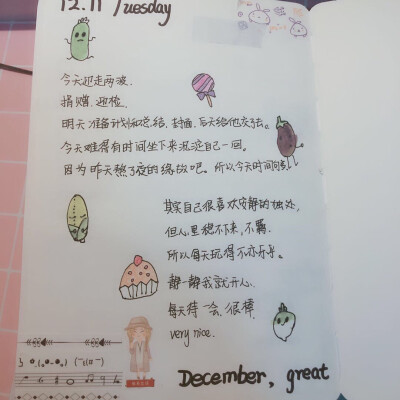 12.11 Tuesday
今天迎走两波.
捐赠.迎检.
明天准备计划和总结.封面.后天给他交了去。
今天难得有时间坐下来沉淀自己一回。
因为昨天熬了夜的缘故吧。所以今天时间
其实自己很喜欢安静的独处,
但心里稳不下来,不羁.
所以每天玩得不亦乐乎。
静一静我就开心.
每天待一会.很棒.
very nice.
December, great